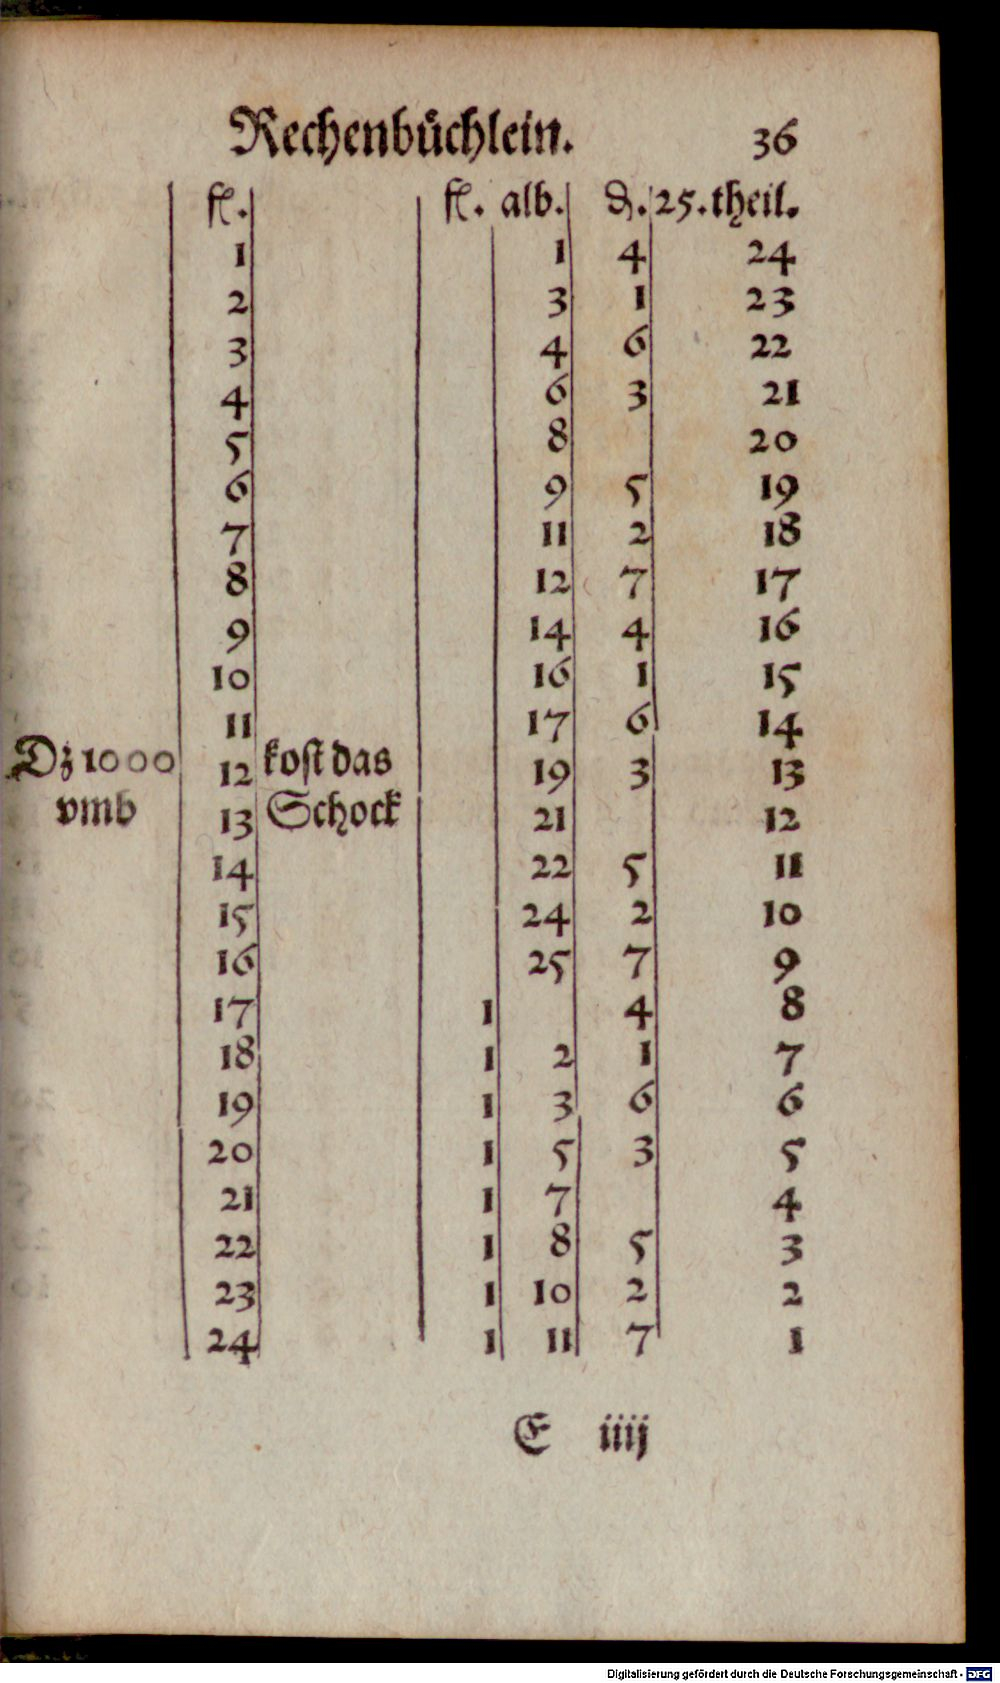 Rechenbüchlein. 36
fl. fl. alb. ₰. 25. theil.
1 1 4 24
2 3 1 23
3 4 6 22
4 6 3 21
5 8 20
6 9 5 19
7 11 2 18
8 12 7 17
9 14 4 16
10 16 1 15
11 17 6 14
Dz 1000 12 kost das 19 3 13
vmb 13 Schock 21 12
14 22 5 11
15 24 2 10
16 25 7 9
17 1 4 8
18 1 2 1 7
19 1 3 6 6
20 1 5 3 5
21 1 7 4
22 1 8 5 3
23 1 10 2 2
24 1 11 7 1
E iiij
Digitalisierung gefördert durch die Deutsche Forschungsgemeinschaft - DFG